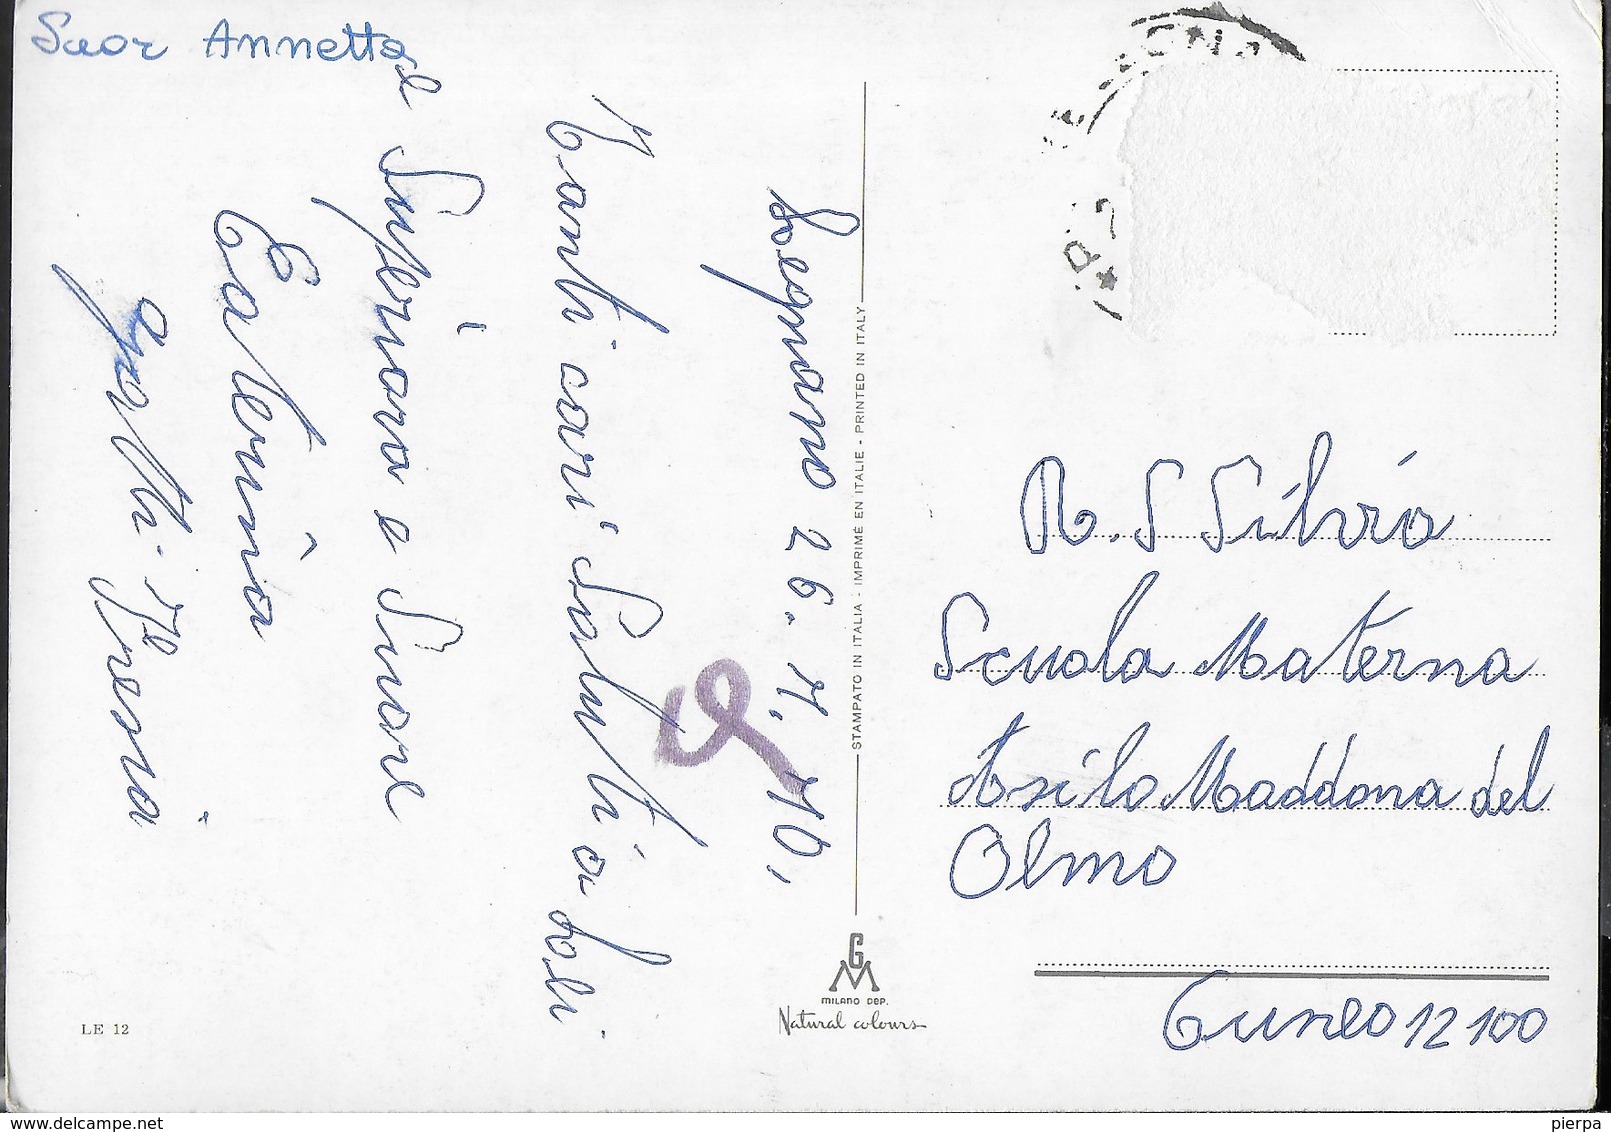 Suor Annetta
Legnano 26. 7, 70,
Tanti cari Saluti a lei
al Superiora e Suore
Caterina
STAMPATO IN ITALIA - IMPRIMÉ EN ITALIE - PRINTED IN ITALY
R. S Silvia
Scuola Materna
Asilo Maddona del
Olmo
Cuneo 12100
GM
MILANO DEP.
Natural colours
LE 12
delcampe.net
pierpa